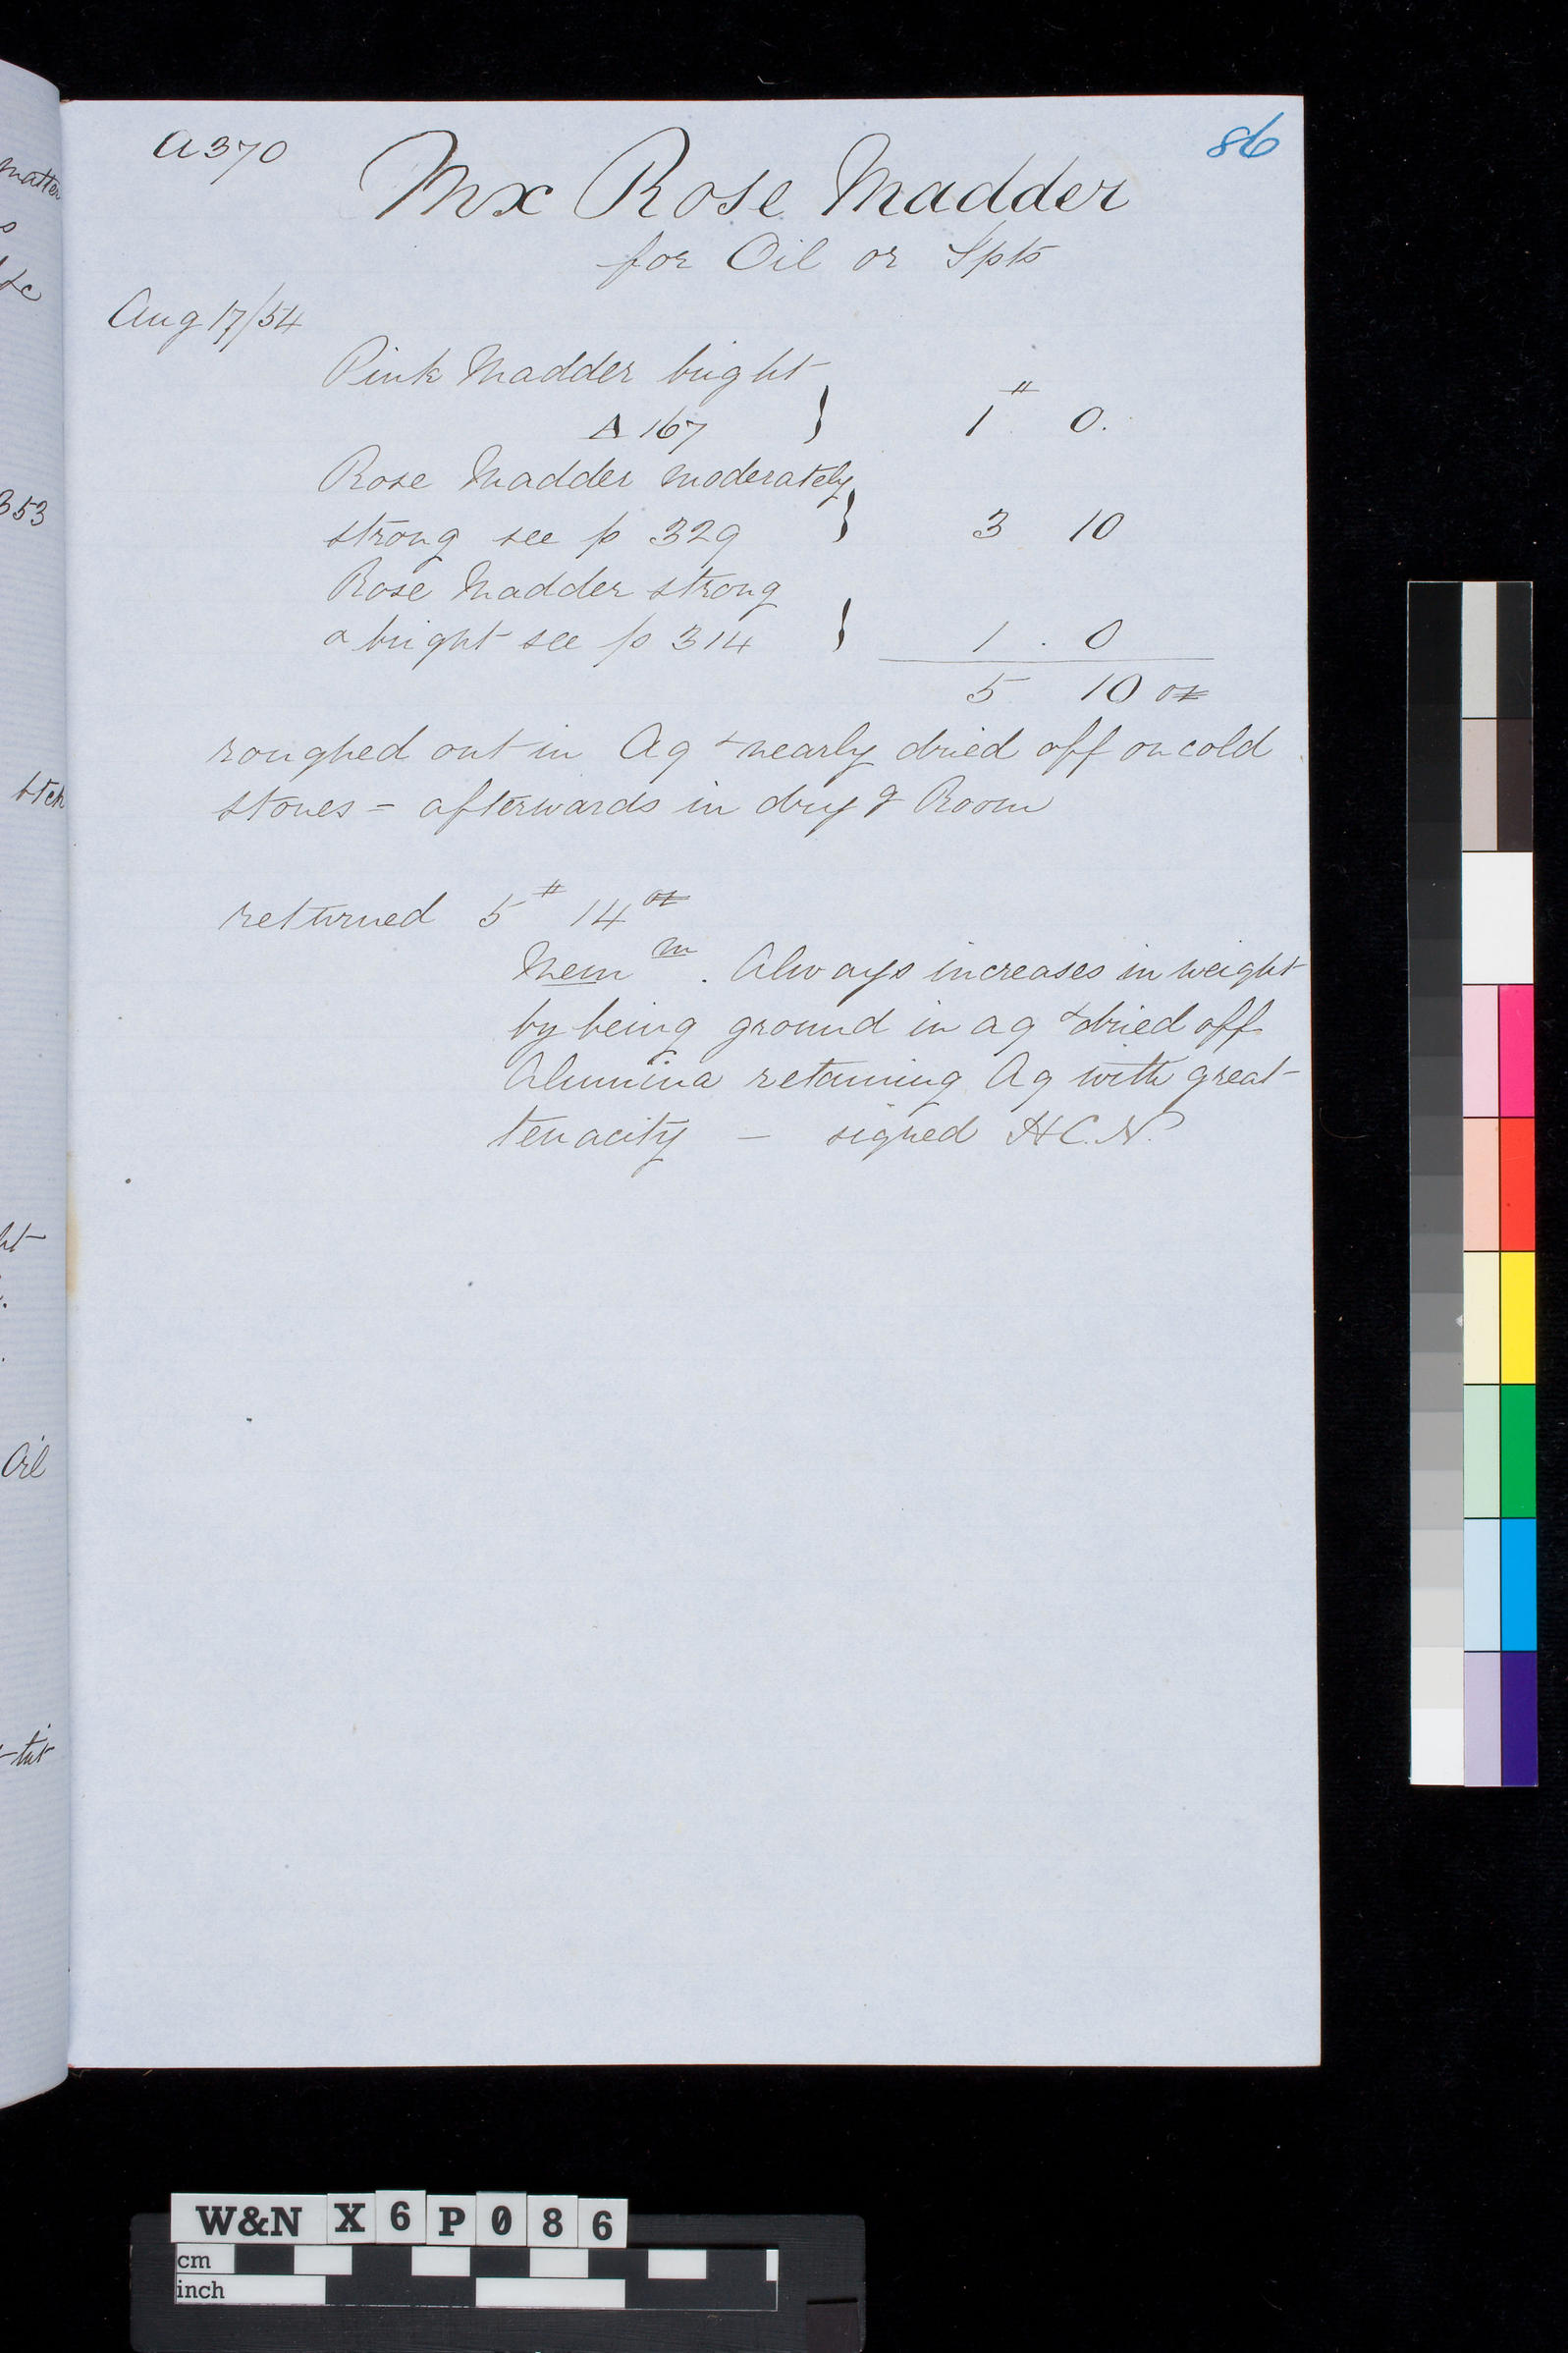 matter
353
Oil
A370
86
Mx Rose Madder
for Oil or Spts
Aug 17/54
Pink Madder bright
A 167 } 1 # 0.
Rose Madder moderately
strong see p 329 } 3 10
Rose Madder strong
& bright see p 314 } 1 . 0
5 10 oz
roughed out in Aq & nearly dried off on cold
stones = afterwards in dryg Room
returned 5 # 14 oz
Mem m. Always increases in weight
by being ground in aq & dried off
Alumina retaining Aq with great
tenacity — signed H.C.N.
W&N X6P086
cm
inch